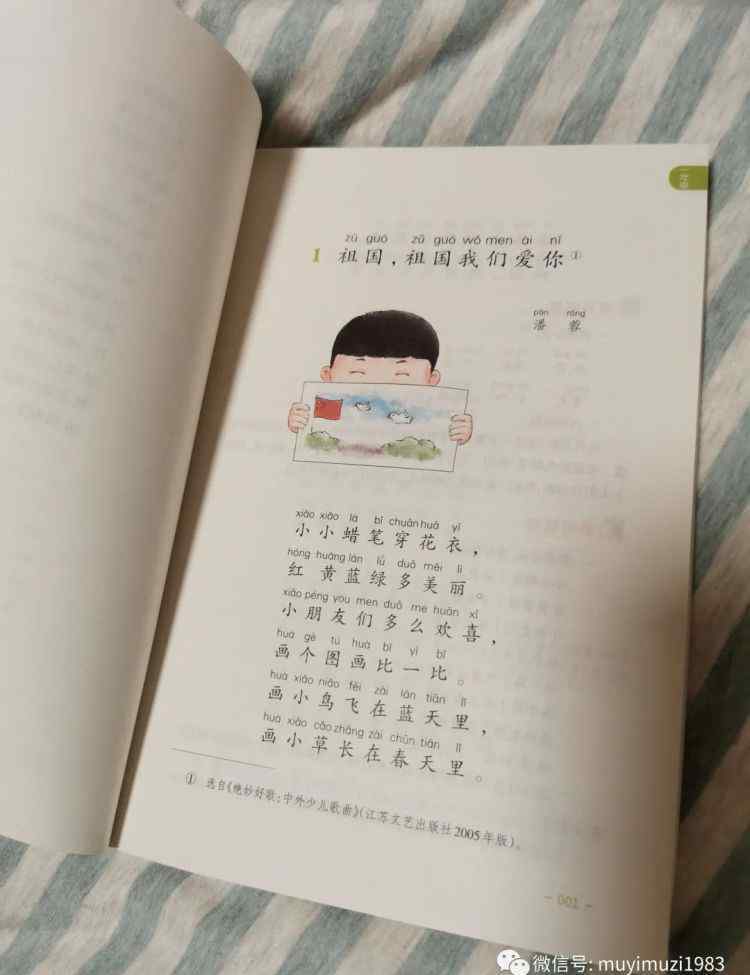 一年级
zǔ guó zǔ guó wǒ men ài nǐ
1 祖国，祖国我们爱你①
pān róng
潘 蓉
xiǎo xiǎo là bǐ chuān huā yī
小小蜡笔穿花衣，
hóng huáng lán lǜ duō měi lì
红黄蓝绿多美丽。
xiǎo péng you men duō me huān xǐ
小朋友们多么欢喜，
huà gè tú huà bǐ yì bǐ
画个图画比一比。
huà xiǎo niǎo fēi zài lán tiān lǐ
画小鸟飞在蓝天里，
huà xiǎo cǎo zhǎng zài chūn tiān lǐ
画小草长在春天里。
① 选自《绝妙好歌：中外少儿歌曲》（江苏文艺出版社2005年版）。
- 001 -
微信号: muyimuzi1983